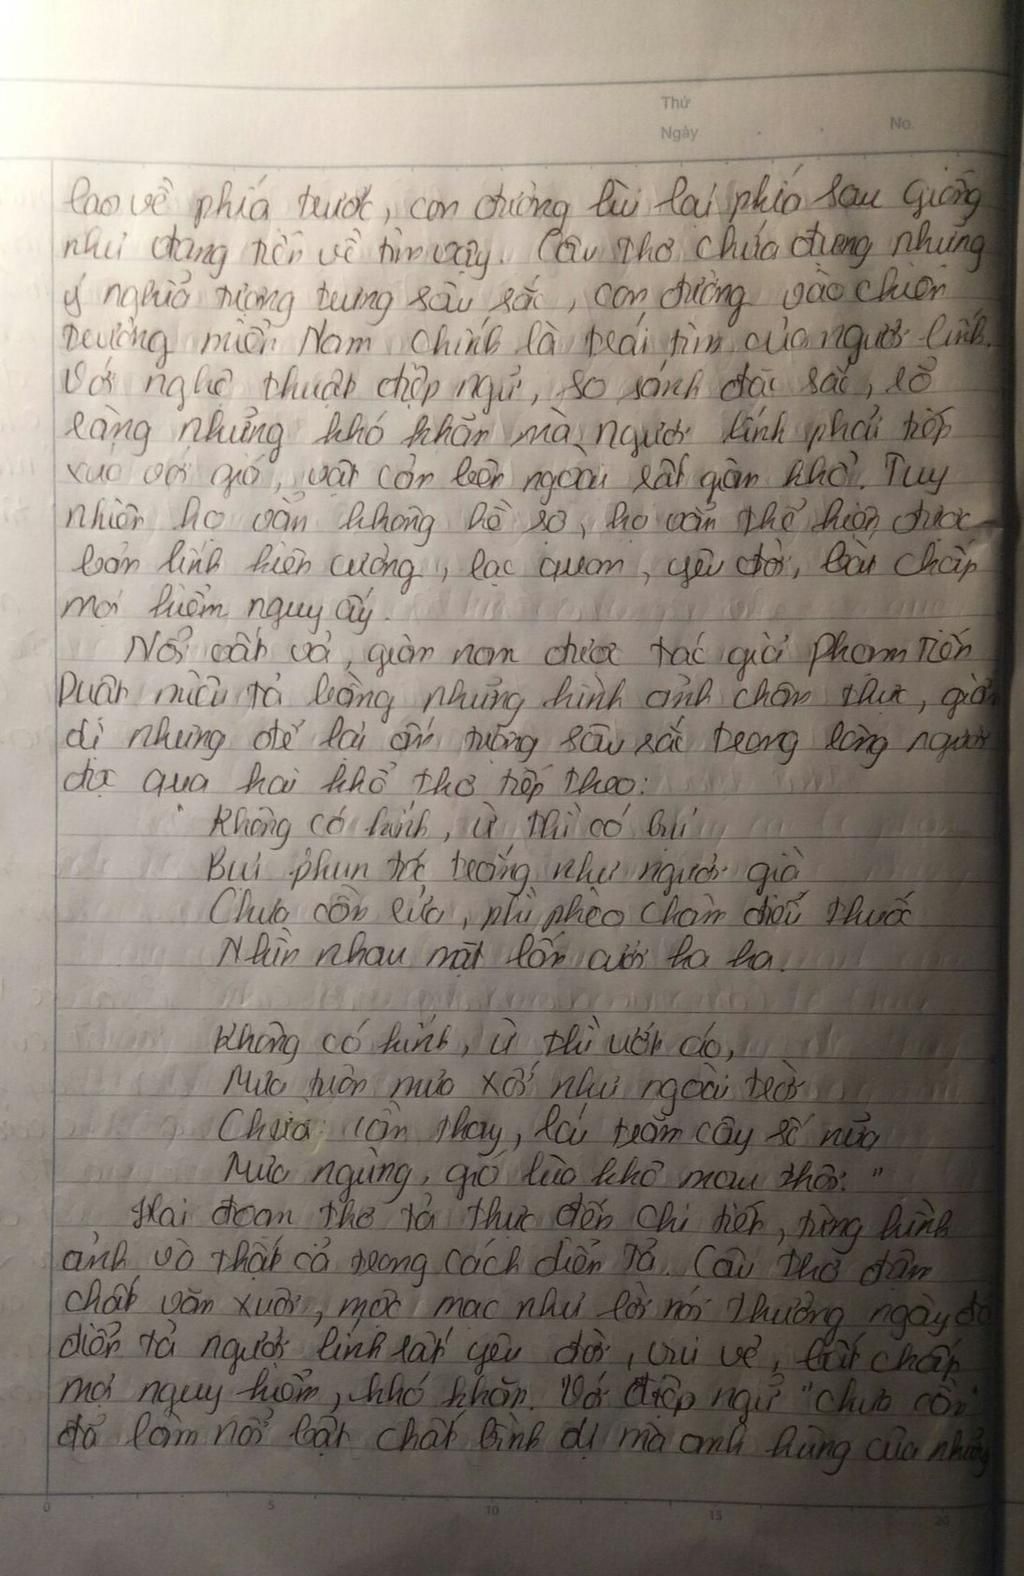 Thứ
Ngày No.
lao về phía trước, con đường lùi lại phía sau giống
như đang tiến về tim vậy. Câu thơ chứa đựng những
ý nghĩa tượng trưng sâu sắc, con đường vào chiến
trường miền Nam chính là trái tim của người lính.
Với nghệ thuật điệp ngữ, so sánh đặc sắc, rõ
ràng những khó khăn mà người lính phải tiếp
xúc với gió, vật cản bên ngoài rất gian khổ. Tuy
nhiên họ vẫn không hề sợ, họ vẫn thể hiện được
bản lĩnh kiên cường, lạc quan, yêu đời, bất chấp
mọi hiểm nguy ấy.
Nỗi vất vả, gian nan được tác giả Phạm Tiến
Duật miêu tả bằng những hình ảnh chân thực, giản
dị nhưng để lại ấn tượng sâu sắc trong lòng người
đọc qua hai khổ thơ tiếp theo:
"Không có kính, ừ thì có bụi
Bụi phun tóc trắng như người già
Chưa cần rửa, phì phèo châm điếu thuốc
Nhìn nhau mặt lấm cười ha ha.
Không có kính, ừ thì ướt áo,
Mưa tuôn mưa xối như ngoài trời
Chưa cần thay, lái trăm cây số nữa
Mưa ngừng, gió lùa khô mau thôi."
Hai đoạn thơ tả thực đến chi tiết, từng hình
ảnh và thật cả trong cách diễn tả. Câu thơ đậm
chất văn xuôi, mộc mạc như lời nói thường ngày đã
diễn tả người lính rất yêu đời, vui vẻ, bất chấp
mọi nguy hiểm, khó khăn. Với điệp ngữ "chưa cần"
đã làm nổi bật chất bình dị mà anh hùng của những
0 5 10 15 20